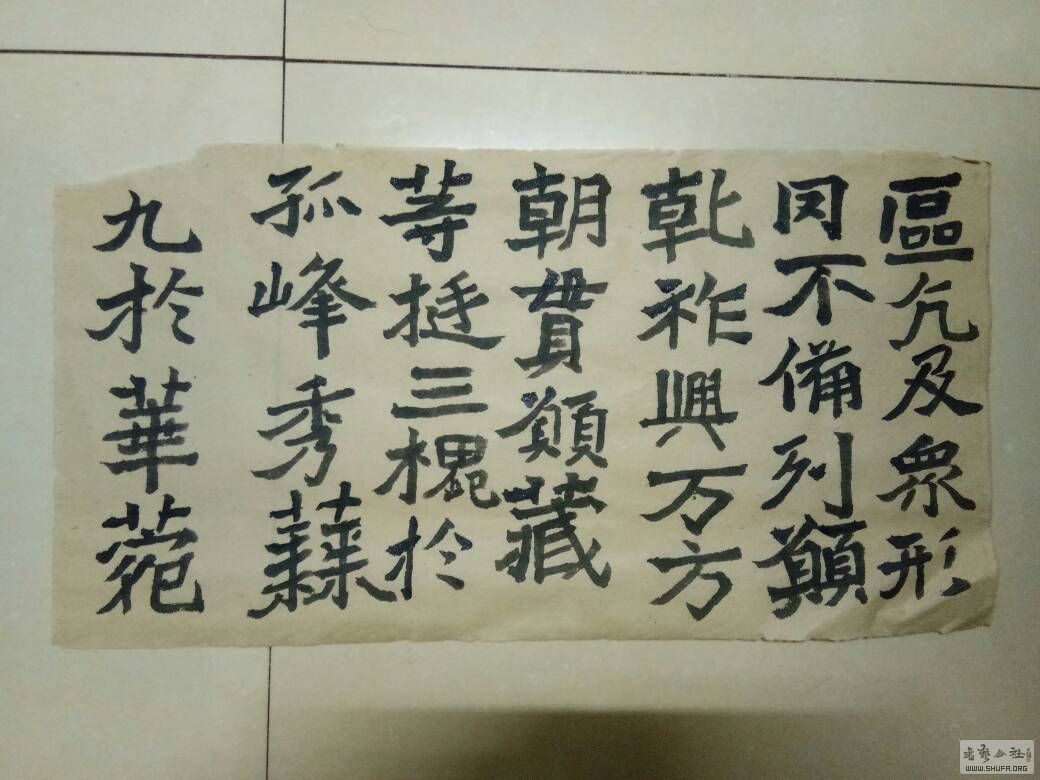 區凢及衆形
罔不備列願
乾祚興万方
朝貫願藏
等挺三槐於
孤峰秀蕀
九於華菀
書藝公社
WWW.SHUFA.ORG